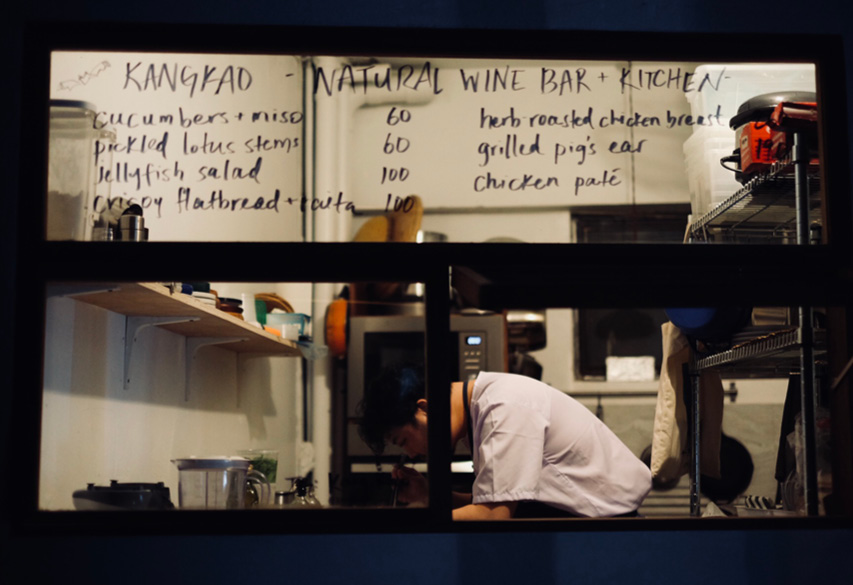 KANGKAO - NATURAL WINE BAR + KITCHEN-
cucumbers + miso 60 herb roasted chicken breast
pickled lotus stems 60 grilled pig's ear
jellyfish salad 100 chicken paté
crispy flatbread + 100